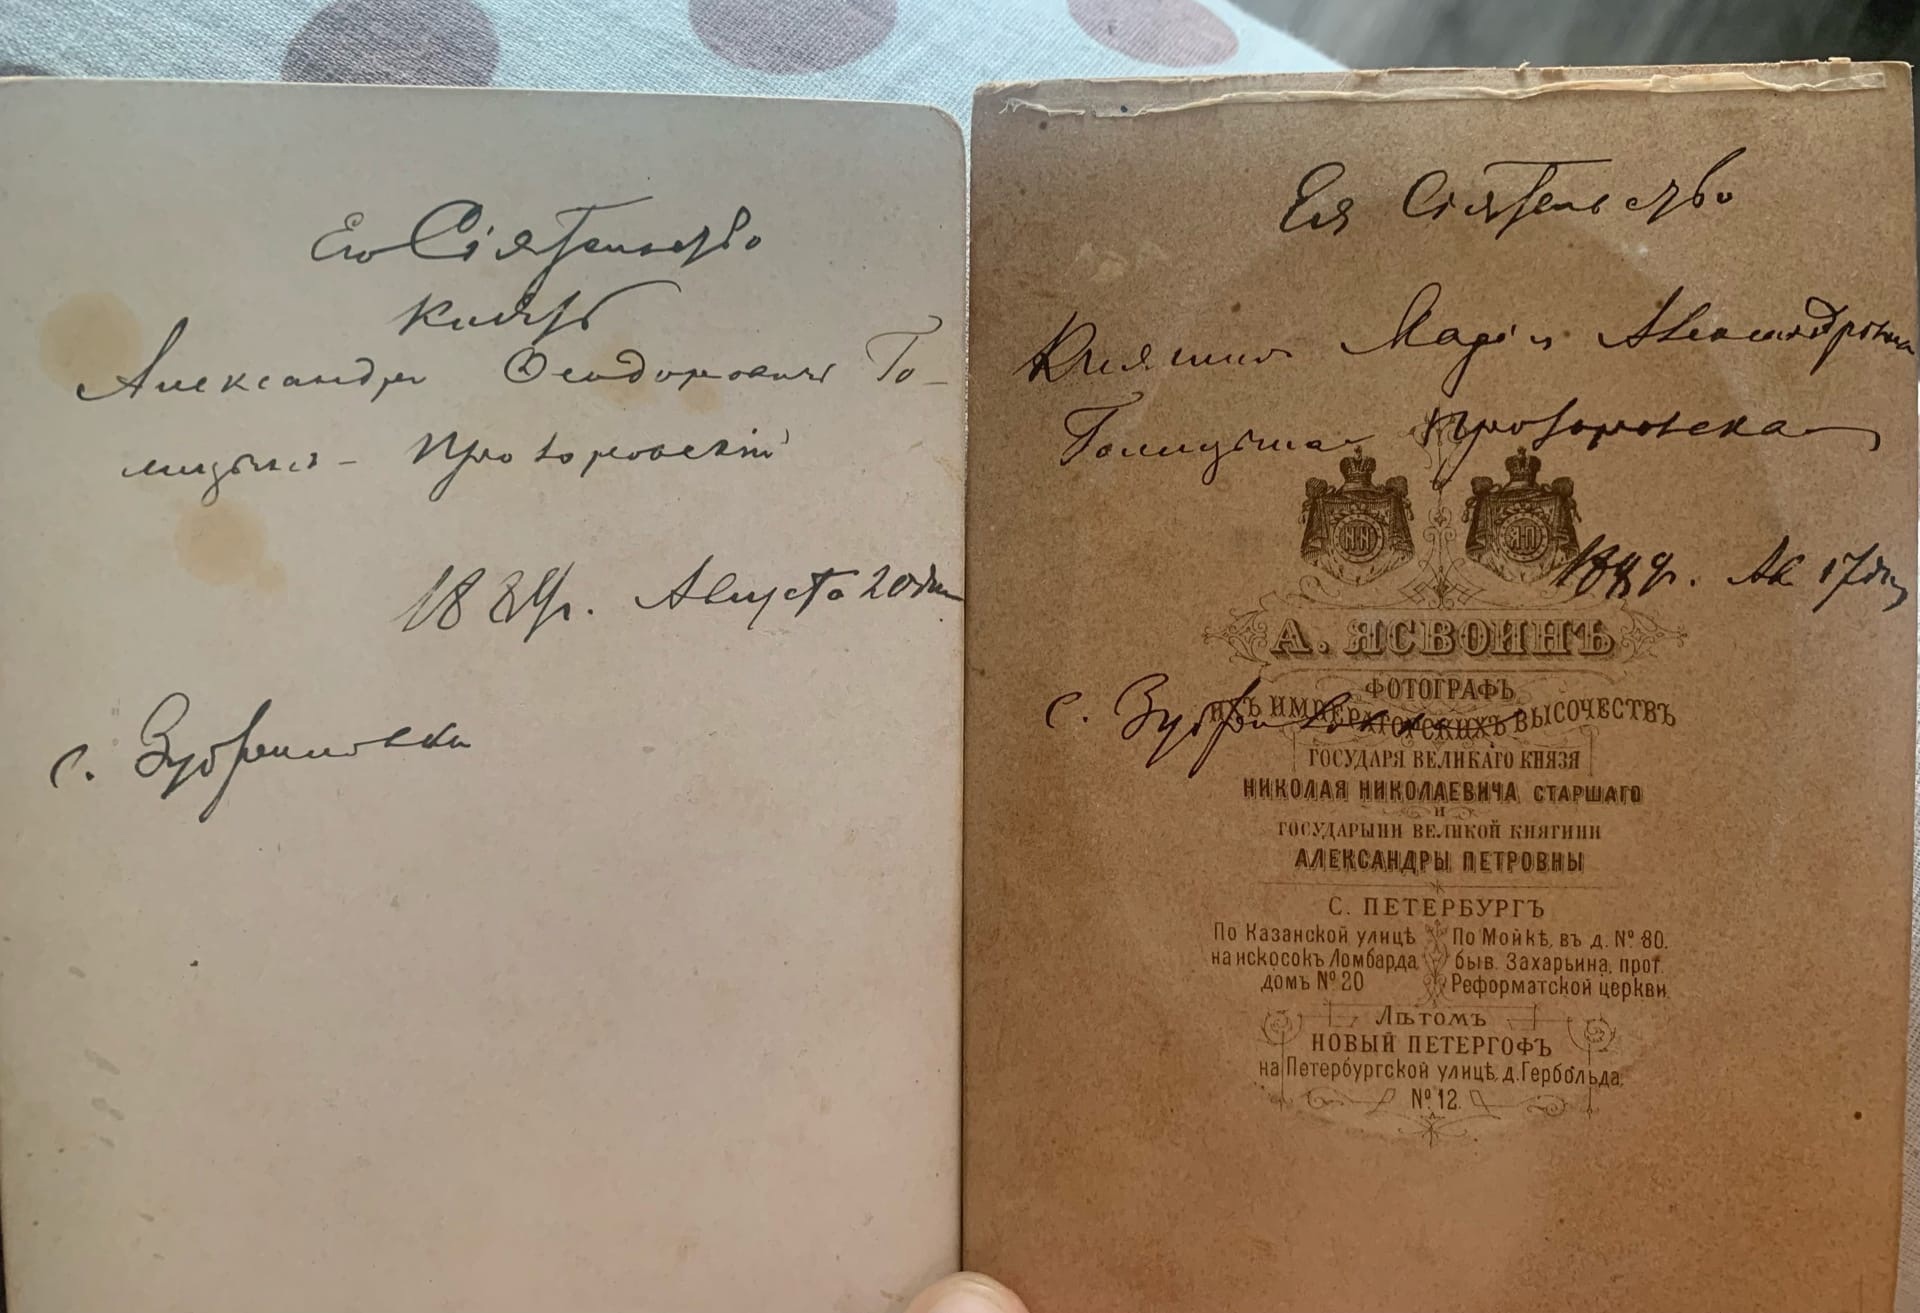 Его Сіятельство
Князь
Александръ Ѳеодоровичъ Го-
лицынъ - Прозоровскій
1889г. Августа 20 дня
с. Зубриловка
Ея Сіятельство
Княгиня Марія Александровна
Голицына Прозоровская
1889г. Ав 17 дня
А. ЯСВОИНЪ
ФОТОГРАФЪ
с. Зубриловка
ИХЪ ИМПЕРАТОРСКИХЪ ВЫСОЧЕСТВЪ
ГОСУДАРЯ ВЕЛИКАГО КНЯЗЯ
НИКОЛАЯ НИКОЛАЕВИЧА СТАРШАГО
И
ГОСУДАРЫНИ ВЕЛИКОЙ КНЯГИНИ
АЛЕКСАНДРЫ ПЕТРОВНЫ
С. ПЕТЕРБУРГЪ
По Казанской улицѣ
на искосокъ Ломбарда
домъ № 20
По Мойкѣ, въ д. № 80.
быв. Захарьина, прот.
Реформатской церкви
Лѣтомъ
НОВЫЙ ПЕТЕРГОФЪ
на Петербургской улицѣ, д. Гербольда,
№ 12.